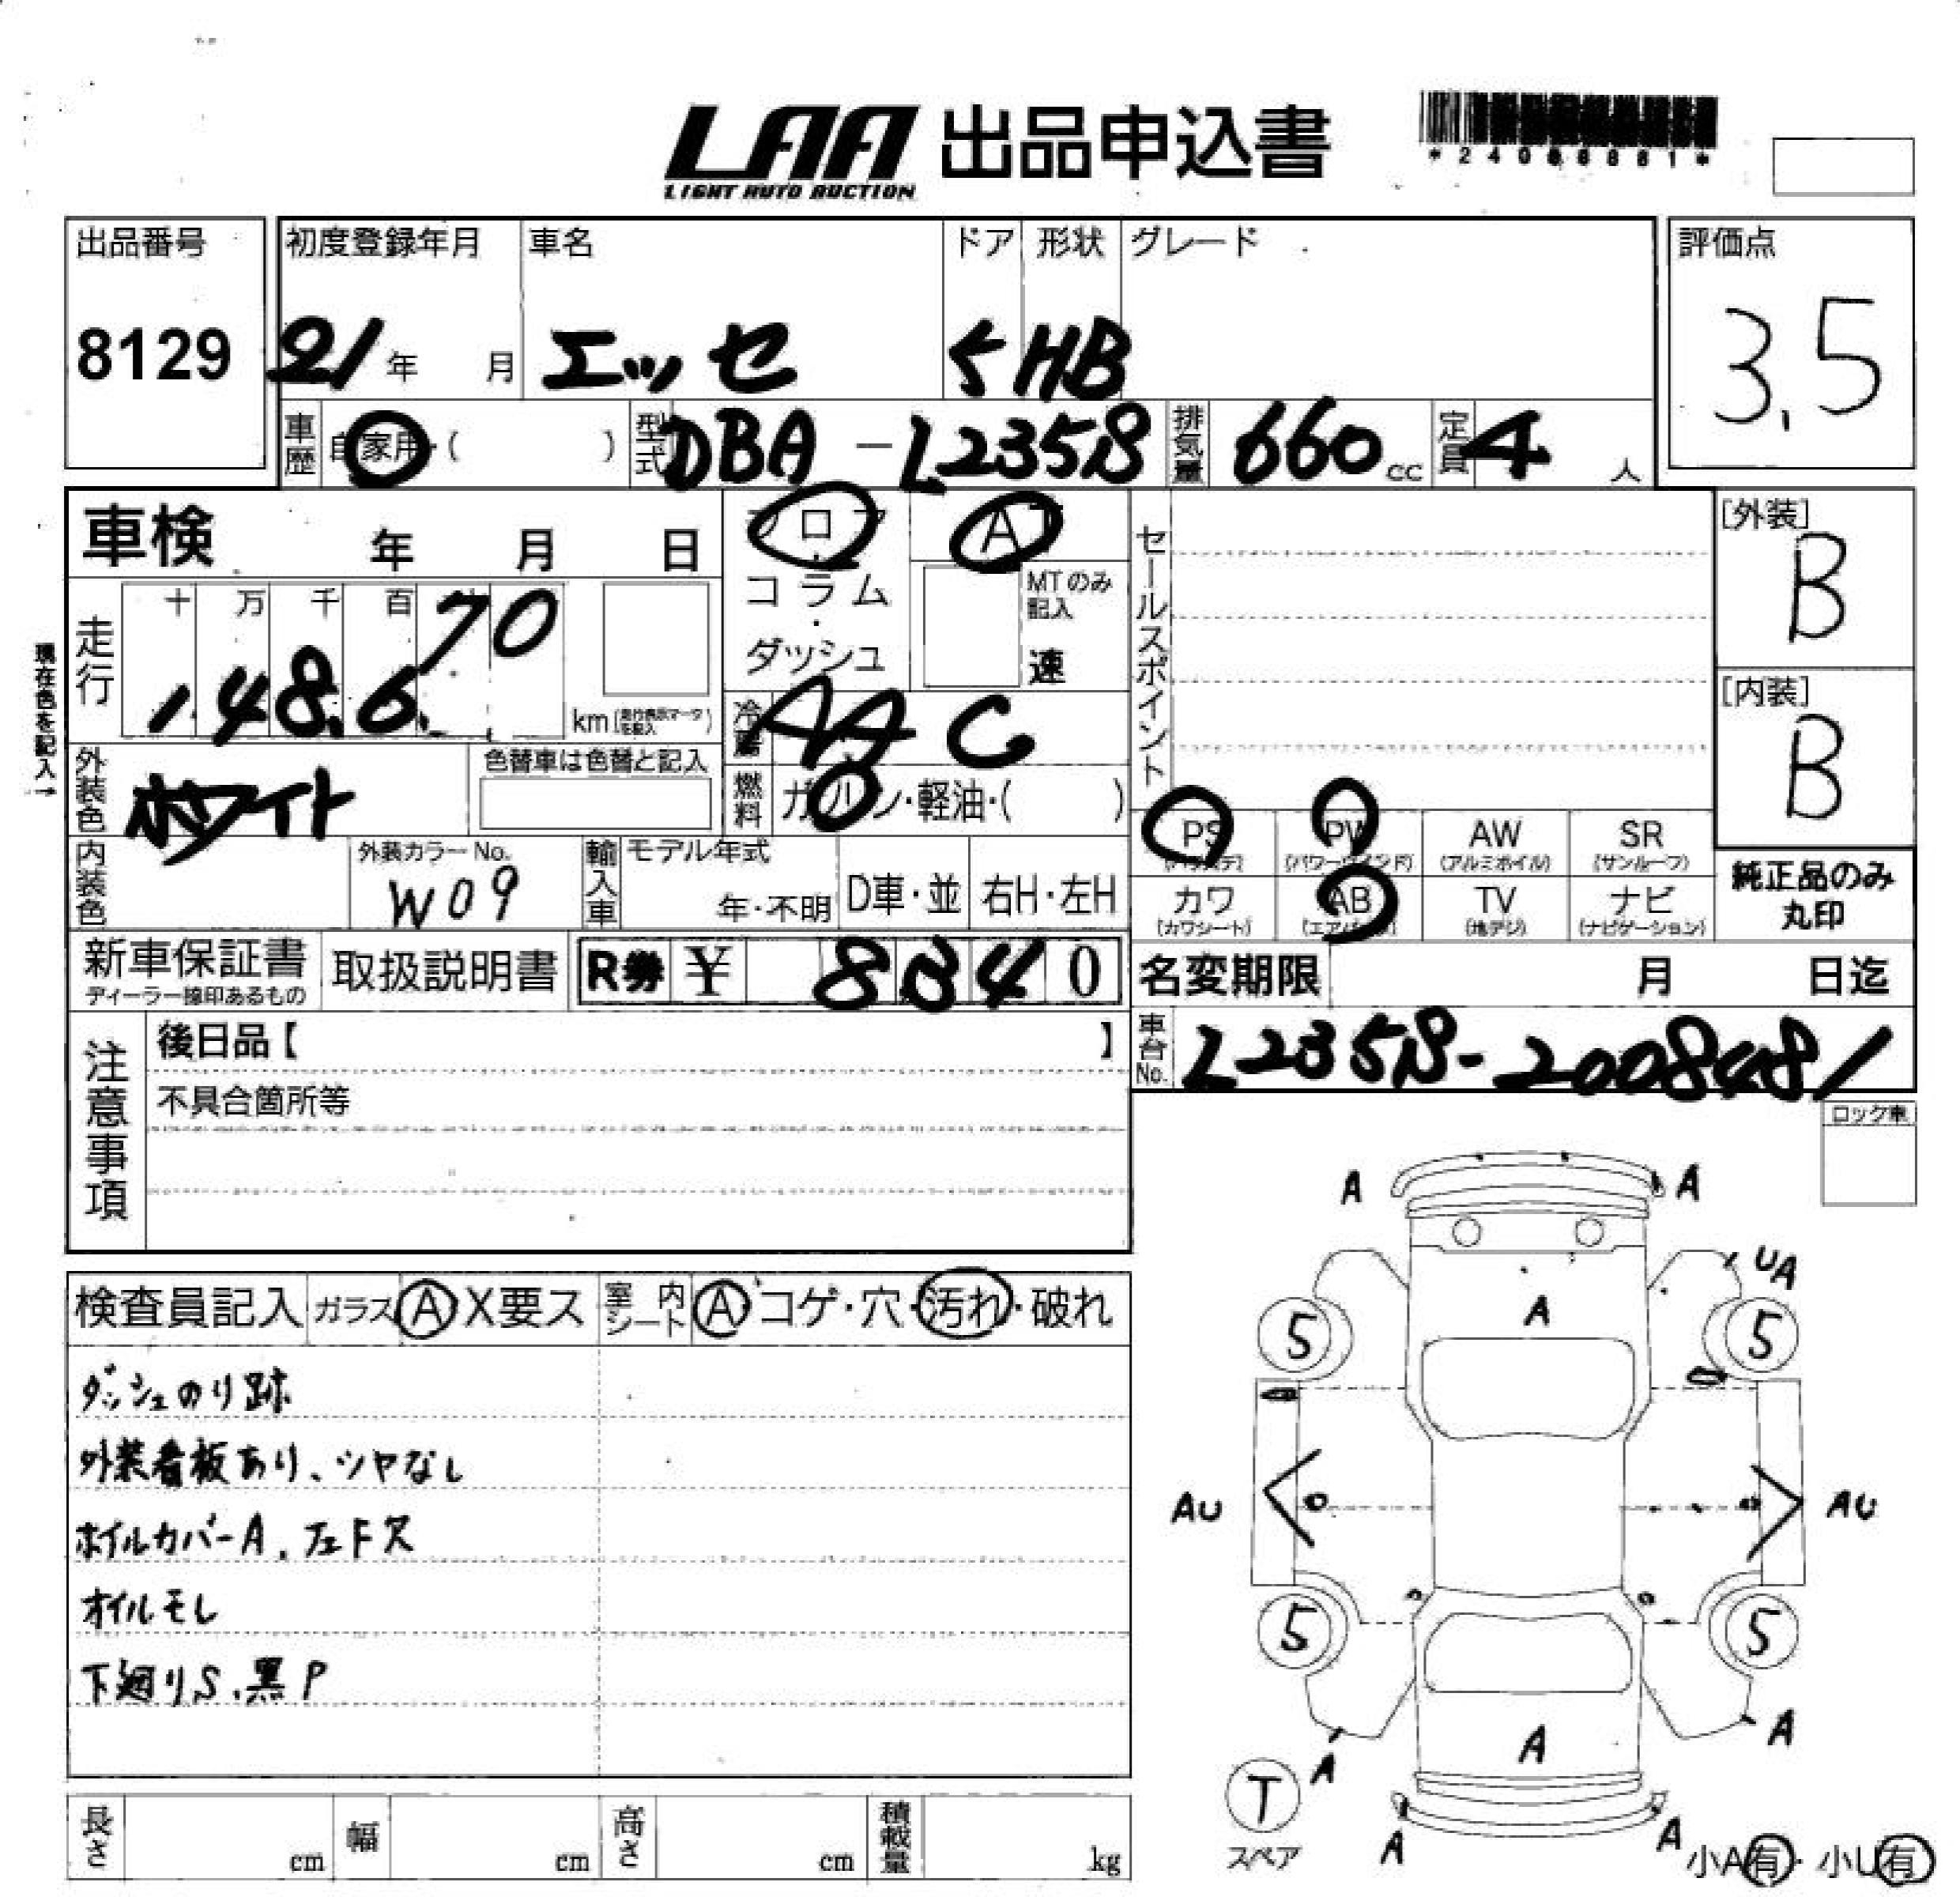 LAA 出品申込書
LIGHT AUTO AUCTION
出品番号 初度登録年月 車名 ドア 形状 グレード 評価点
8129 21年 月 エッセ 5 HB 3.5
車歴 自家用・( ) 型式 DBA-L235S 排気量 660cc 定員 4人
車検 年 月 日 フロア AT セールスポイント [外装] B
コラム・ダッシュ MTのみ記入 速
現在色を記入→
走行 十 万 千 百 148.670 km
冷暖 AAC [内装] B
外装色 ホワイト 色替車は色替と記入 燃料 ガソリン・軽油・( )
PS (パワステ) PW (パワーウインド) AW (アルミホイル) SR (サンルーフ)
内装色 外装カラーNo. W09 輸入車 モデル年式 年・不明 D車・並 右H・左H
カワ (カワシート) AB (エアバッグ) TV (地デジ) ナビ (ナビゲーション) 純正品のみ丸印
新車保証書 ディーラー捺印あるもの 取扱説明書 R券 ¥ 8840 名変期限 月 日迄
車台No. L235S-2008481
注意事項 後日品【 】
不具合箇所等
ロック車
検査員記入 ガラス A X要ス 室内シート A コゲ・穴・汚れ・破れ
ダッシュのり跡
外装看板あり、ツヤなし
ホイルカバーA、左F欠
オイルモレ
下廻りS、黒P
A A
UA
A
5 5
AU AU
5 5
A A
A
T
スペア
A A
小A有・小U有
長さ cm 幅 cm 高さ cm 積載量 kg